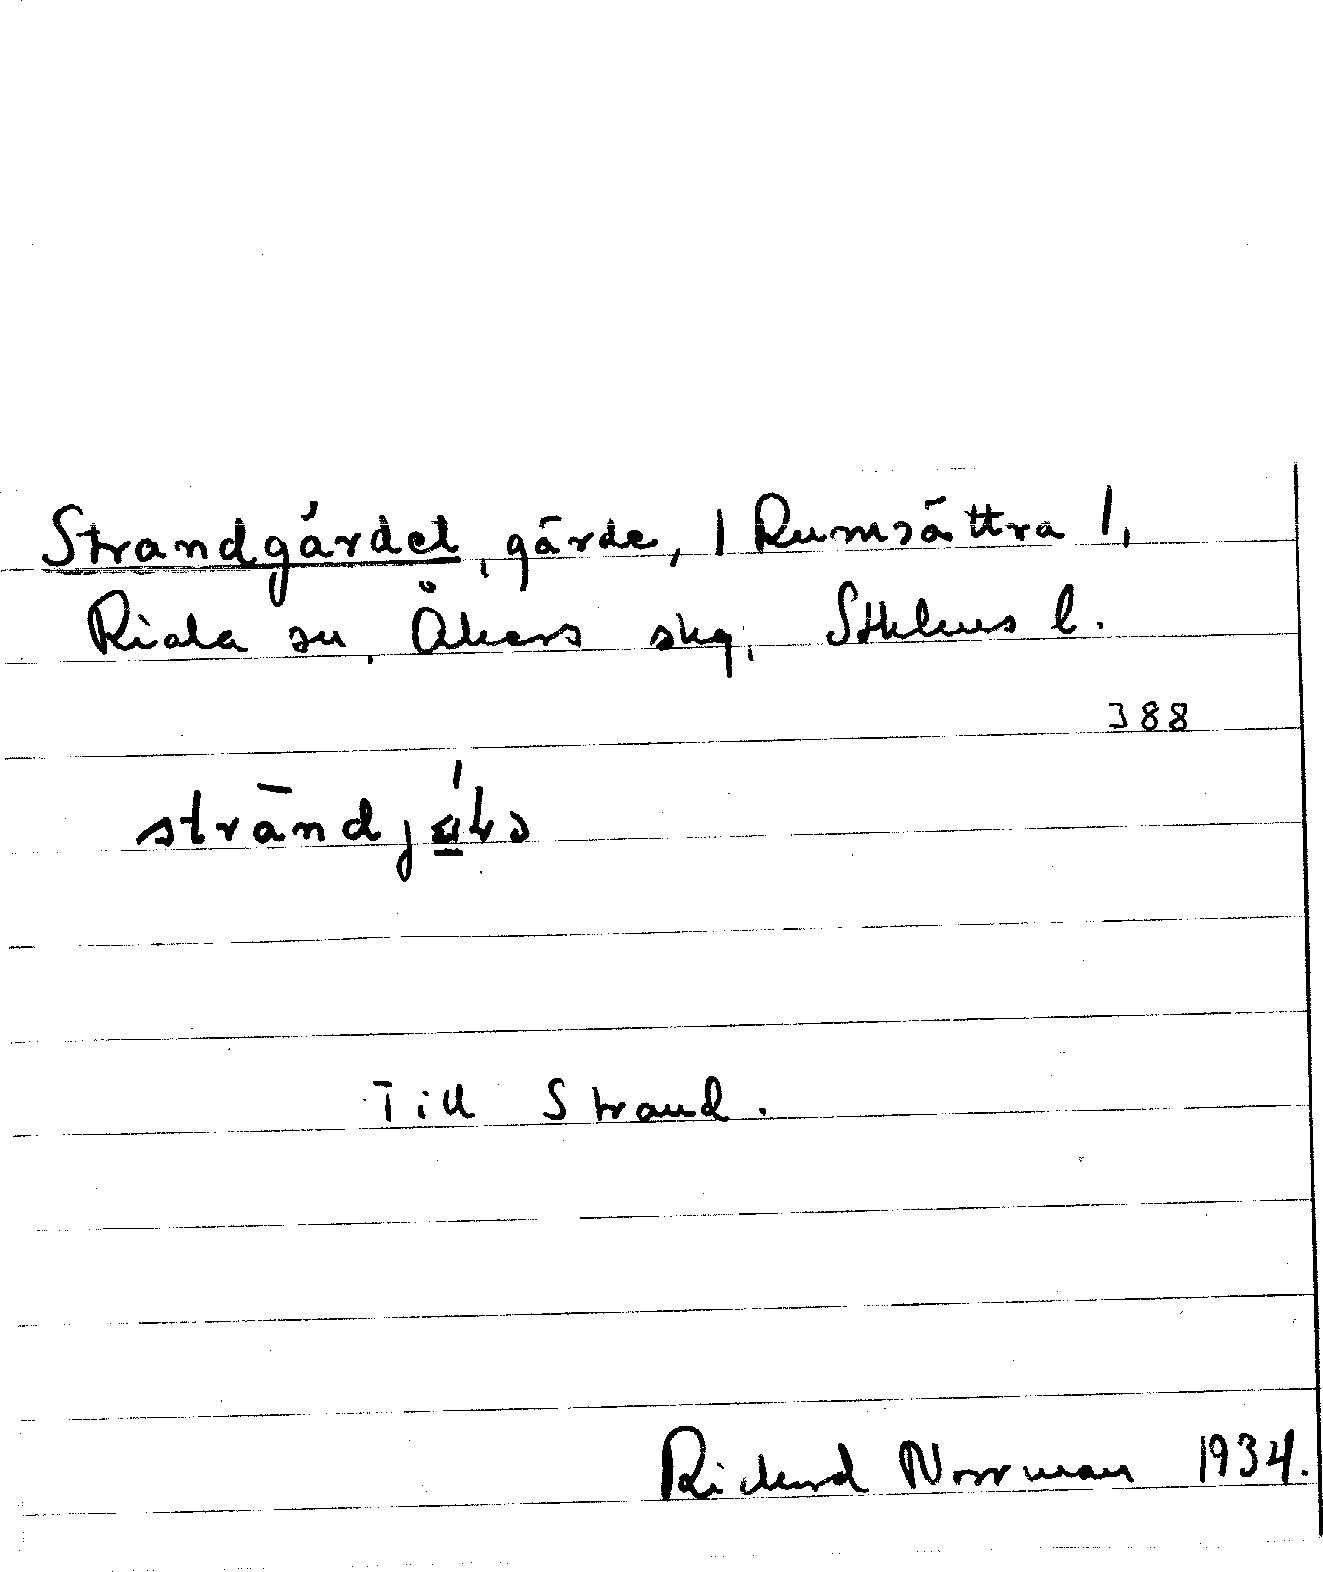 Strandgärdet, gärde, | Rumsättra |,
Riala sn, Åkers skg, Sthlms l.
388
Till Strand.
Richard Norrman 1934.